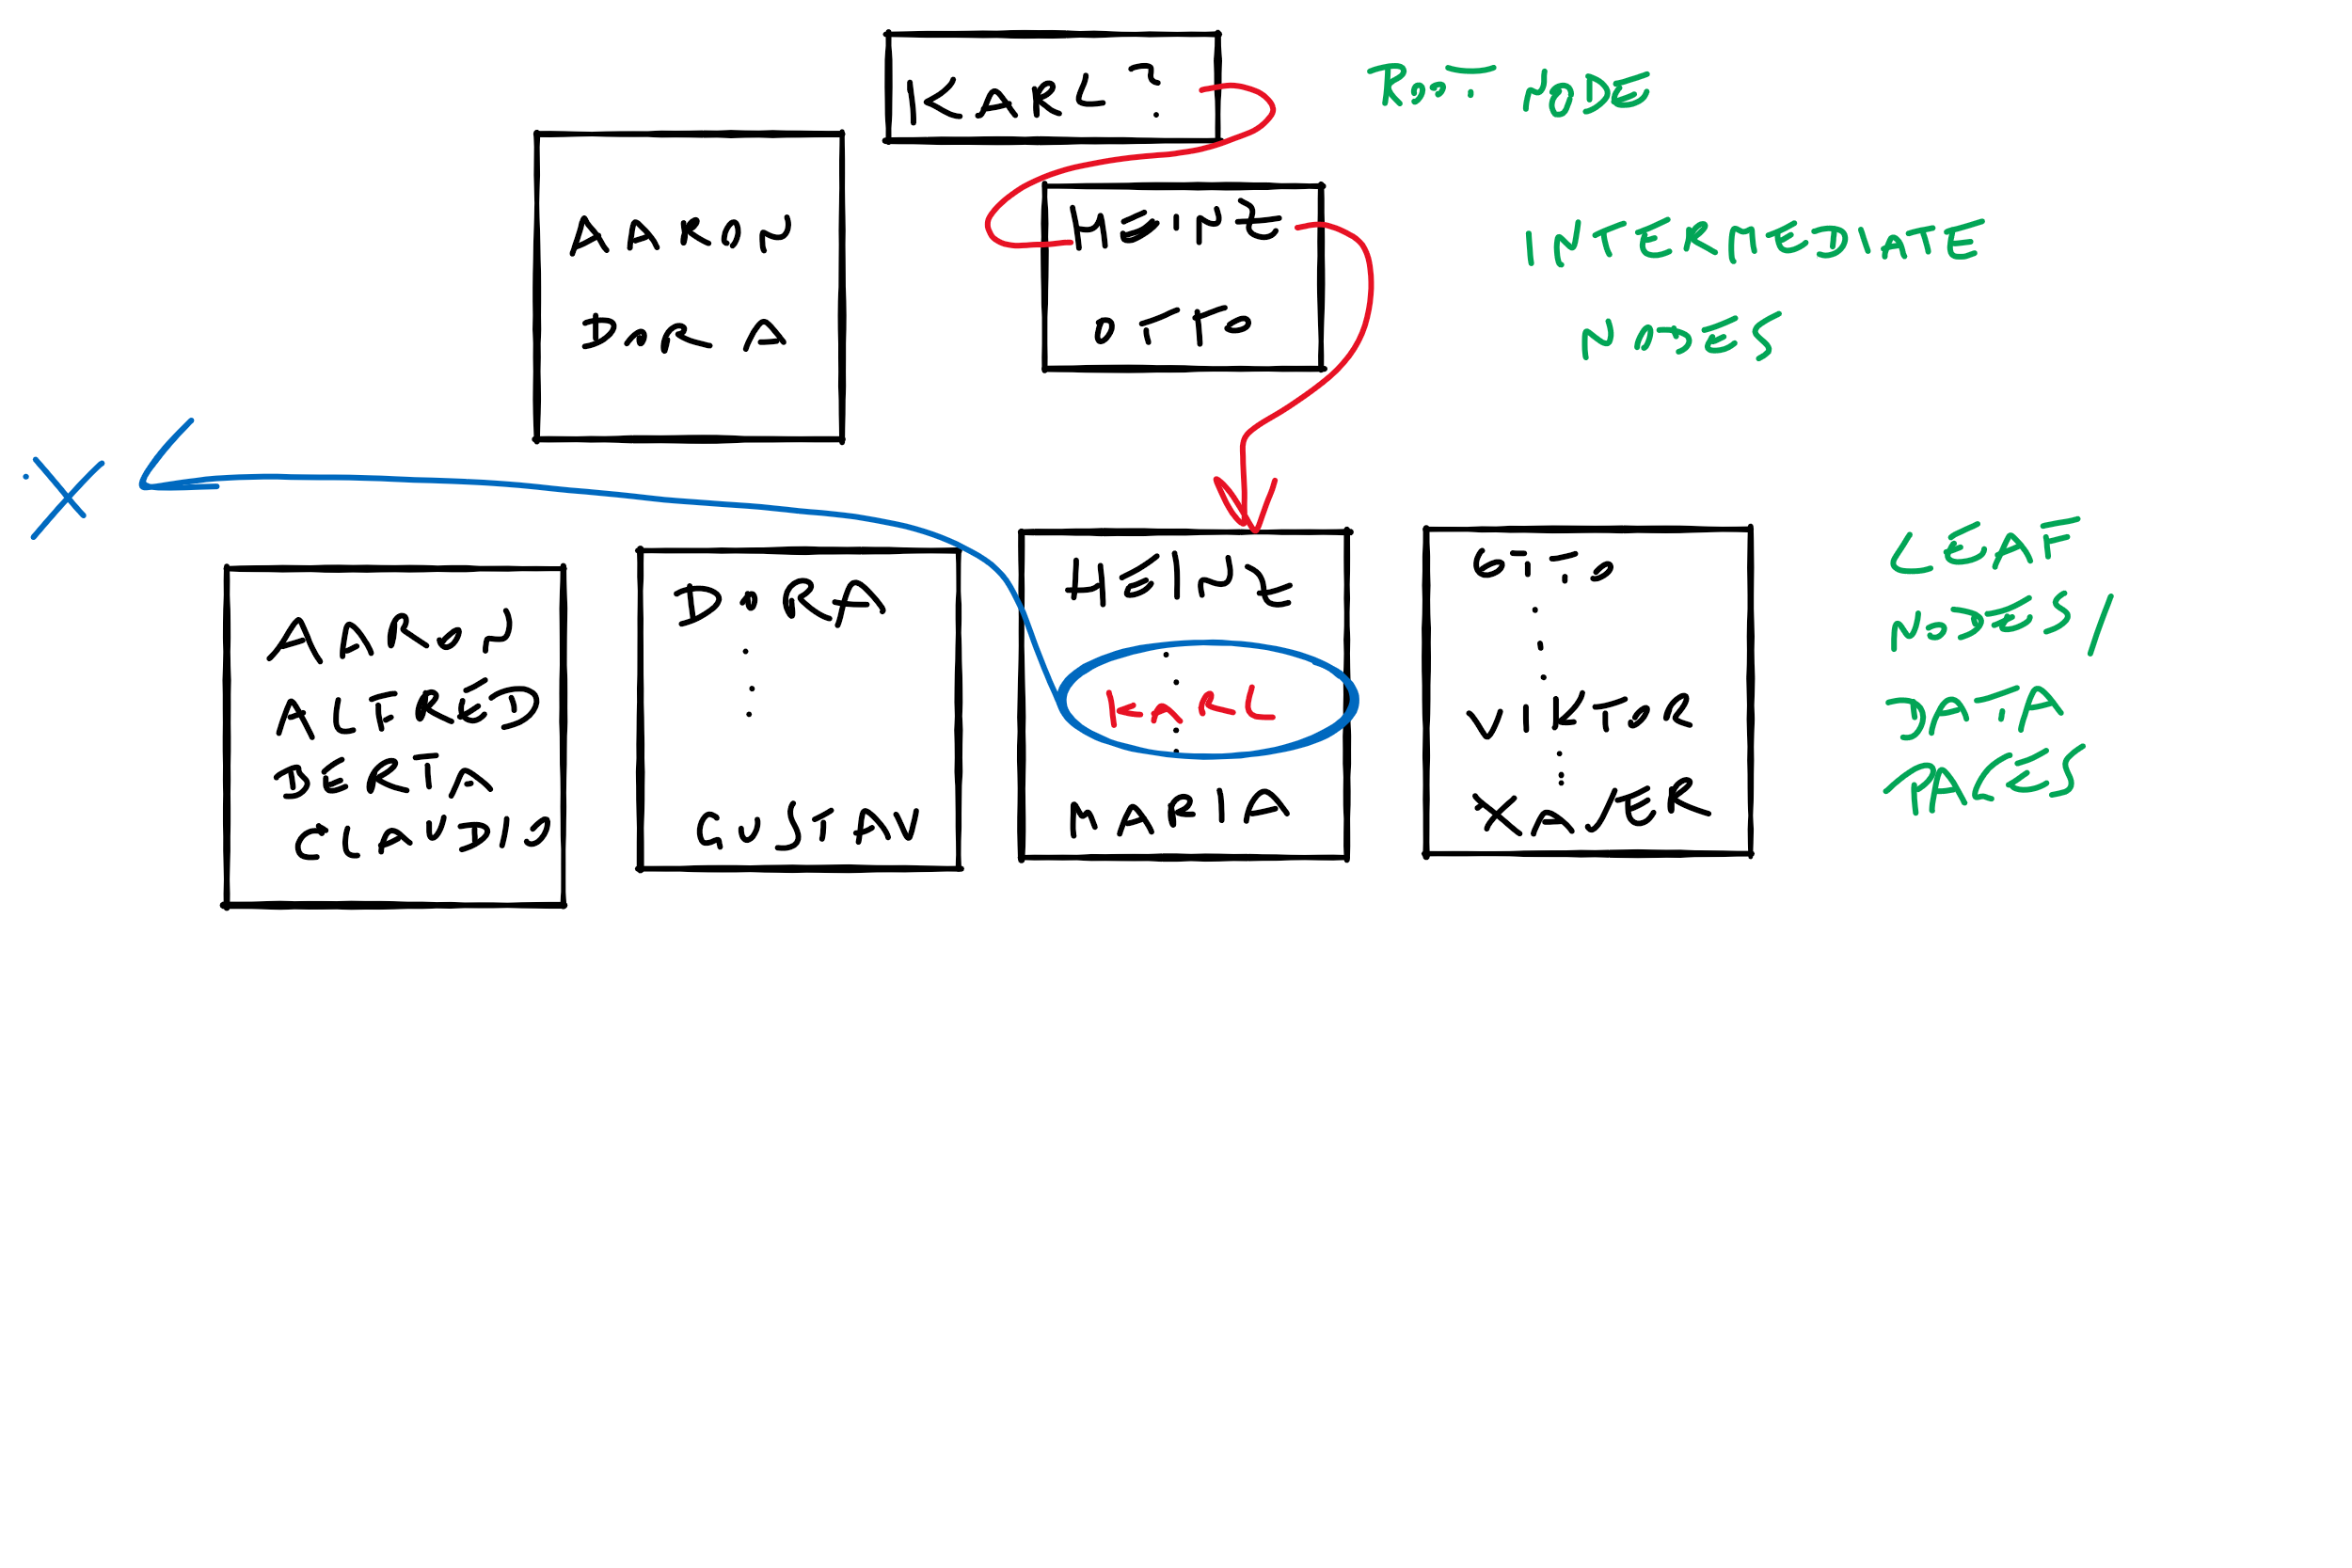 KARL?
ROOT NODE
AARON
DORA
HEINZ
OTTO
INTERMEDIATE
NODES
X
AARON
ALFRED
BERTA
CLAUDIO
DORA
GUSTAV
HEINZ
KARL
MARIA
OTTO
VIKTOR
XAVER
LEAF
NODES/
DATA
PAGES